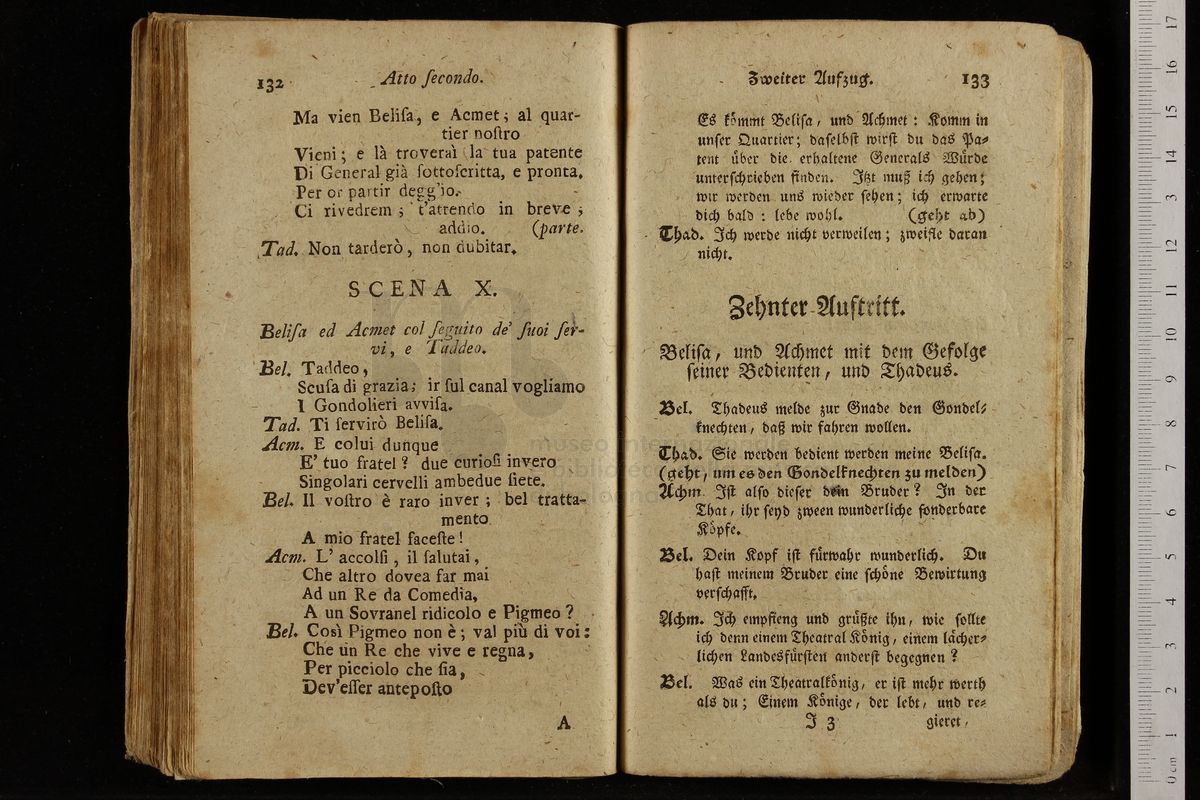 132 Atto ſecondo.
Ma vien Beliſa, e Acmet; al quar-
tier noſtro
Vieni; e là troverai la tua patente
Di General già ſottoſcritta, e pronta.
Per or partir degg'io.
Ci rivedrem; t'attendo in breve;
addio. (parte.
Tad. Non tarderò, non dubitar.
SCENA X.
Beliſa ed Acmet col ſeguito de' ſuoi ſer-
vi, e Taddeo.
Bel. Taddeo,
Scuſa di grazia; ir ſul canal vogliamo
I Gondolieri avviſa.
Tad. Ti ſervirò Beliſa.
Acm. E colui dunque
E' tuo fratel? due curioſi invero
Singolari cervelli ambedue ſiete.
Bel. Il voſtro è raro inver; bel tratta-
mento
A mio fratel faceſte!
Acm. L' accolſi, il ſalutai,
Che altro dovea far mai
Ad un Re da Comedia,
A un Sovranel ridicolo e Pigmeo?
Bel. Così Pigmeo non è; val più di voi:
Che un Re che vive e regna,
Per picciolo che ſia,
Dev'eſſer antepoſto
A
Zweiter Aufzug. 133
Es kömmt Beliſa, und Achmet: Komm in
unſer Quartier; daſelbſt wirſt du das Pa-
tent über die erhaltene Generals Würde
unterſchrieben finden. Itzt muß ich gehen;
wir werden uns wieder ſehen; ich erwarte
dich bald: lebe wohl. (geht ab)
Thad. Ich werde nicht verweilen; zweifle daran
nicht.
Zehnter Auftritt.
Beliſa, und Achmet mit dem Gefolge
ſeiner Bedienten, und Thadeus.
Bel. Thadeus melde zur Gnade den Gondel-
knechten, daß wir fahren wollen.
Thad. Sie werden bedient werden meine Beliſa.
(geht, um es den Gondelknechten zu melden)
Achm. Iſt alſo dieſer dein Bruder? In der
That, ihr ſeyd zween wunderliche ſonderbare
Köpfe.
Bel. Dein Kopf iſt fürwahr wunderlich. Du
haſt meinem Bruder eine ſchöne Bewirtung
verſchafft.
Achm. Ich empfieng und grüßte ihn, wie ſollte
ich denn einem Theatral König, einem lächer-
lichen Landesfürſten anderſt begegnen?
Bel. Was ein Theatralkönig, er iſt mehr werth
als du; Einem Könige, der lebt, und re-
I 3 gieret,